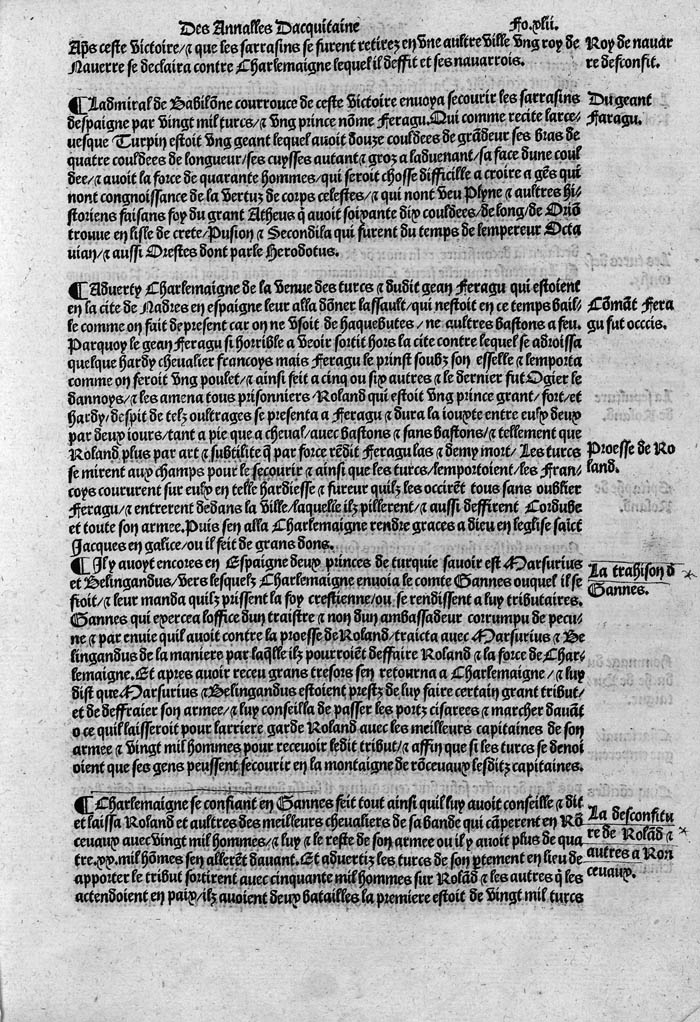 Des Annalles Dacquitaine
Fo.xlii.
Aps̄ ceste victoire/⁊ que les sarrasins se furent retirez en vne aultre ville vng roy de
Nauerre se declaira contre Charlemaigne lequel il deffit et ses nauarrois.
Roy de nauar
re desconfit.
¶Ladmiral de Babilōne courrouce de ceste victoire enuoya secourir les sarrasins
despaigne par vingt mil turcs/⁊ vng prince nōme Feragu. Qui comme recite larce-
uesque Turpin estoit vng geant lequel auoit douze couldees de grādeur ses bras de
quatre couldees de longueur/ses cuysses autant ⁊ groz a laduenant/sa face dune coul
dee/⁊ auoit la force de quarante hommes/qui seroit chosse difficille a croire a gēs qui
nont congnoissance de la vertuz de corps celestes/⁊ qui nont veu Plyne ⁊ aultres hi-
storiens faisans foy du grant Atheus q̄ auoit soixante dix couldees/de long/de Oriō
trouue en lisle de crete/Pusion ⁊ Secondila qui furent du temps de lempereur Octa
uian/⁊ aussi Orestes dont parle Herodotus.
Du geant
Faragu.
¶Aduerty Charlemaigne de la venue des turcs ⁊ dudit gean Feragu qui estoient
en la cite de Nadres en espaigne leur alla dōner lassault/qui nestoit en ce temps bail-
le comme on fait depresent car on ne vsoit de haquebutes/ne aultres bastons a feu.
Parquoy le gean Feragu si horrible a veoir sortit hors la cite contre lequel se adroissa
quelque hardy cheualier francoys mais Feragu le prinst soubz son esselle ⁊ lemporta
comme on feroit vng poulet/⁊ ainsi feit a cinq ou six autres ⁊ le dernier fut Ogier le
dannoys/⁊ les amena tous prisonniers/Roland qui estoit vng prince grant/fort/et
hardy/despit de telz oultrages se presenta a Feragu ⁊ dura la iouxte entre eulx deux
par deux iours/tant a pie que a cheual/auec bastons ⁊ sans bastons/⁊ tellement que
Roland plus par art ⁊ subtilite q̄ par force rēdit Feragu las ⁊ demy mort/Les turcs
se mirent aux champs pour le secourir ⁊ ainsi que les turcs/lemportoient/les Fran-
coys coururent sur eulx en telle hardiesse ⁊ fureur quilz les occirēt tous sans oublier
Feragu/⁊ entrerent dedans la ville/laquelle ilz pillerent/⁊ aussi deffirent Cordube
et toute son armee. Puis sen alla Charlemaigne rendre graces a dieu en leglise saīct
Jacques en galice/ou il feit de grans dons.
Cōmāt Fera
gu fut occcis.
Proesse de Ro
land.
¶Il y auoyt encores en Espaigne deux princes de turquie sauoir est Marsurius
et Belingandus/vers lesquelz Charlemaigne enuoia le comte Gannes ouquel il se
fioit/⁊ leur manda quilz prissent la foy crestienne/ou se rendissent a luy tributaires.
Gannes qui exercea loffice dun traistre ⁊ non dun ambassadeur corrumpu de pecu-
ne ⁊ par enuie quil auoit contre la proesse de Roland/traicta auec Marsurius ⁊ Be
lingandus de la maniere par laq̄lle ilz pourroiēt deffaire Roland ⁊ la force de Char-
lemaigne. Et apres auoir receu grans tresors sen retourna a Charlemaigne/⁊ luy
dist que Marsurius ⁊ Belingandus estoient prestz de luy faire certain grant tribut/
et de deffraier son armee/⁊ luy conseilla de passer les portz cisarees ⁊ marcher dauāt
o ce quil laisseroit pour larriere garde Roland auec les meilleurs capitaines de son
armee ⁊ vingt mil hommes pour receuoir ledit tribut/⁊ affin que si les turcs se denoi
oient que ses gens peussent secourir en la montaigne de rōceuaux lesditz capitaines.
La trahison d
Gannes.
¶Charlemaigne se confiant en Gannes feit tout ainsi quil luy auoit conseille ⁊ dit
et laissa Roland et aultres des meilleurs cheualiers de sa bande qui cāperent en Rō
ceuaux auec vingt mil hommes/⁊ luy ⁊ le reste de son armee ou il y auoit plus de qua
tre.xx.mil hōmes sen allerēt dauant. Et aduertiz les turcs de son ptement en lieu de
apporter le tribut sortirent auec cinquante mil hommes sur Rolād ⁊ les autres q̄ les
actendoient en paix/ilz auoient deux batailles la premiere estoit de vingt mil turcs
La desconfitu
re de Rolād ⁊
autres a Ron
ceuaux.